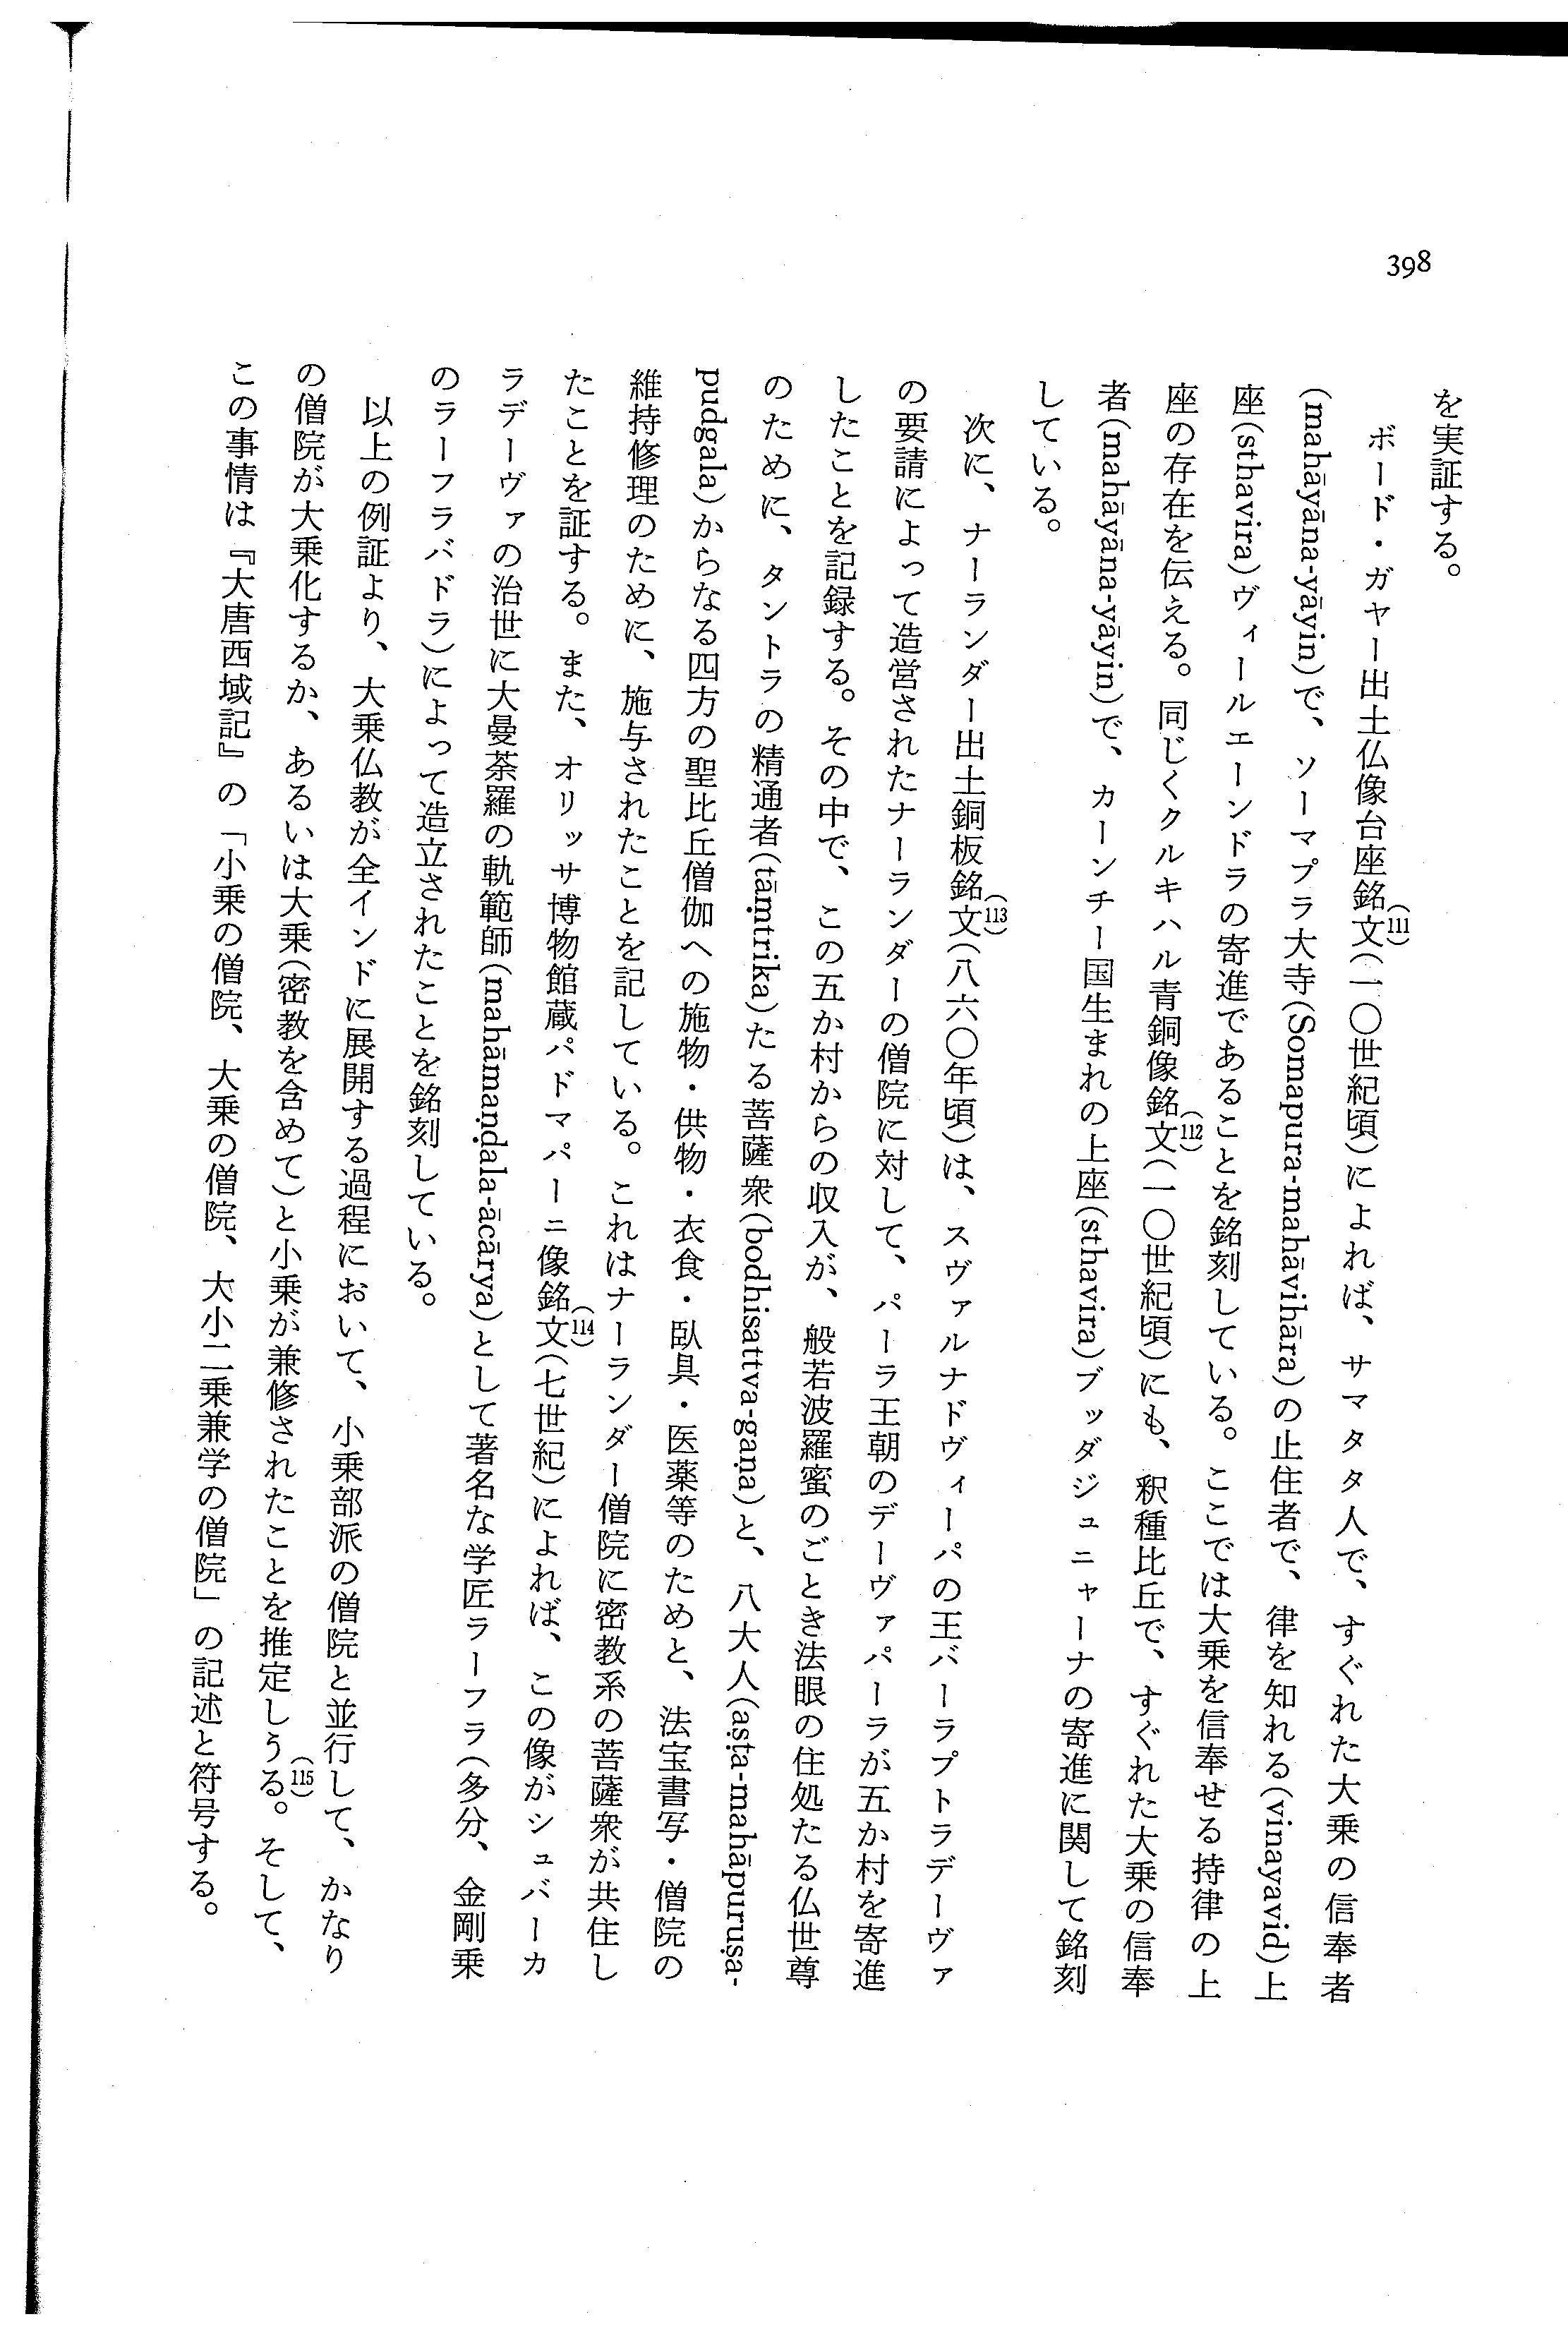 398
を実証する。
ボード・ガヤー出土仏像台座銘文(111)(一〇世紀頃)によれば、サマタタ人で、すぐれた大乗の信奉者
(mahāyāna-yāyin)で、ソーマプラ大寺(Somapura-mahāvihāra)の止住者で、律を知れる(vinayavid)上
座(sthavira)ヴィールエーンドラの寄進であることを銘刻している。ここでは大乗を信奉せる持律の上
座の存在を伝える。同じくクルキハル青銅像銘文(112)(一〇世紀頃)にも、釈種比丘で、すぐれた大乗の信奉
者(mahāyāna-yāyin)で、カーンチー国生まれの上座(sthavira)ブッダジュニャーナの寄進に関して銘刻
している。
次に、ナーランダー出土銅板銘文(113)(八六〇年頃)は、スヴァルナドヴィーパの王バーラプトラデーヴァ
の要請によって造営されたナーランダーの僧院に対して、パーラ王朝のデーヴァパーラが五か村を寄進
したことを記録する。その中で、この五か村からの収入が、般若波羅蜜のごとき法眼の住処たる仏世尊
のために、タントラの精通者(tāṃtrika)たる菩薩衆(bodhisattva-gaṇa)と、八大人(aṣṭa-mahāpuruṣa-
pudgala)からなる四方の聖比丘僧伽への施物・供物・衣食・臥具・医薬等のためと、法宝書写・僧院の
維持修理のために、施与されたことを記している。これはナーランダー僧院に密教系の菩薩衆が共住し
たことを証する。また、オリッサ博物館蔵パドマパーニ像銘文(114)(七世紀)によれば、この像がシュバーカ
ラデーヴァの治世に大曼荼羅の軌範師(mahāmaṇḍala-ācārya)として著名な学匠ラーフラ(多分、金剛乗
のラーフラバドラ)によって造立されたことを銘刻している。
以上の例証より、大乗仏教が全インドに展開する過程において、小乗部派の僧院と並行して、かなり
の僧院が大乗化するか、あるいは大乗(密教を含めて)と小乗が兼修されたことを推定しうる(115)。そして、
この事情は『大唐西域記』の「小乗の僧院、大乗の僧院、大小二乗兼学の僧院」の記述と符号する。